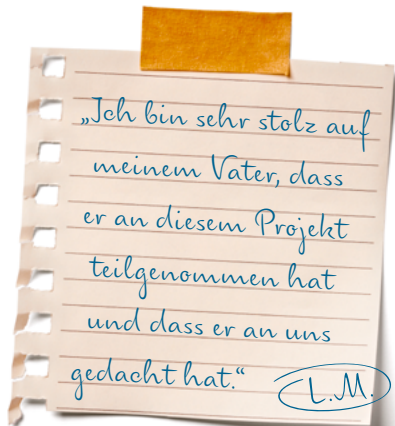 „Ich bin sehr stolz auf
meinem Vater, dass
er an diesem Projekt
teilgenommen hat
und dass er an uns
gedacht hat.“
L.M.